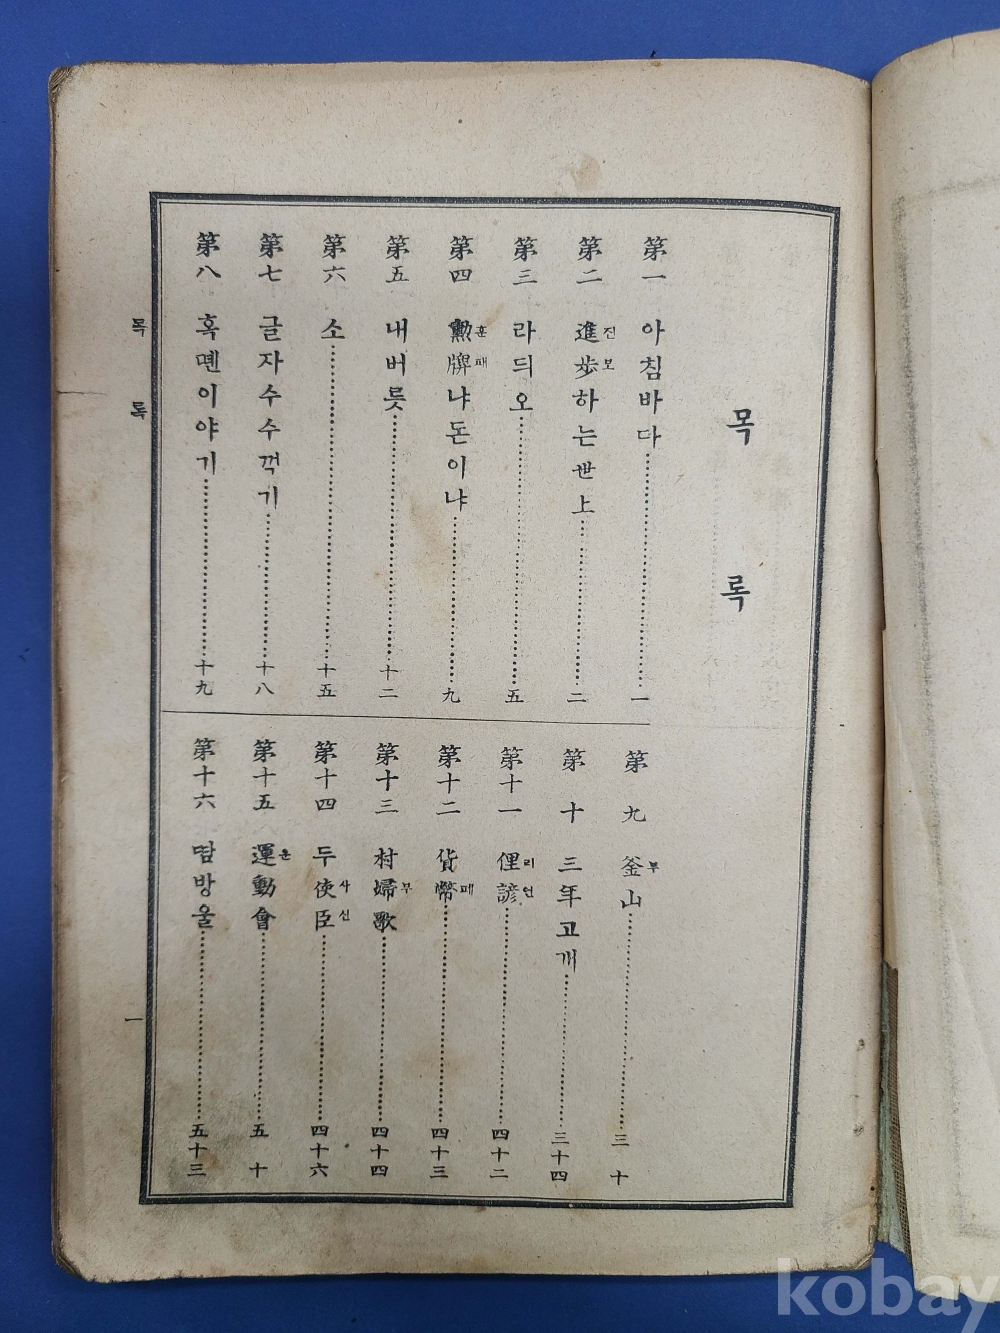 목 록
第一 아침바다 一
第二 進진步보하는世上 二
第三 라듸오 五
第四 勳훈牌패냐돈이냐 九
第五 내버릇 十二
第六 소 十五
第七 글자수수꺽기 十八
第八 혹뗀이야기 十九
第九 釜부山 三十
第十 三年고개 三十四
第十一 俚리諺언 四十二
第十二 貨幣폐 四十三
第十三 村婦부歌 四十四
第十四 두使사臣신 四十六
第十五 運운動會 五十
第十六 땀방울 五十三
목 록
一
kobay